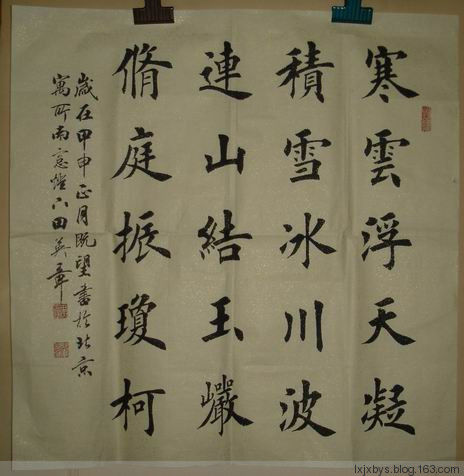 寒雲浮天凝
積雪冰川波
連山結玉巖
脩庭振瓊柯
歲在甲申正月既望書於北京
寓所南窓燈下田英章
lxjxbys.blog.163.com